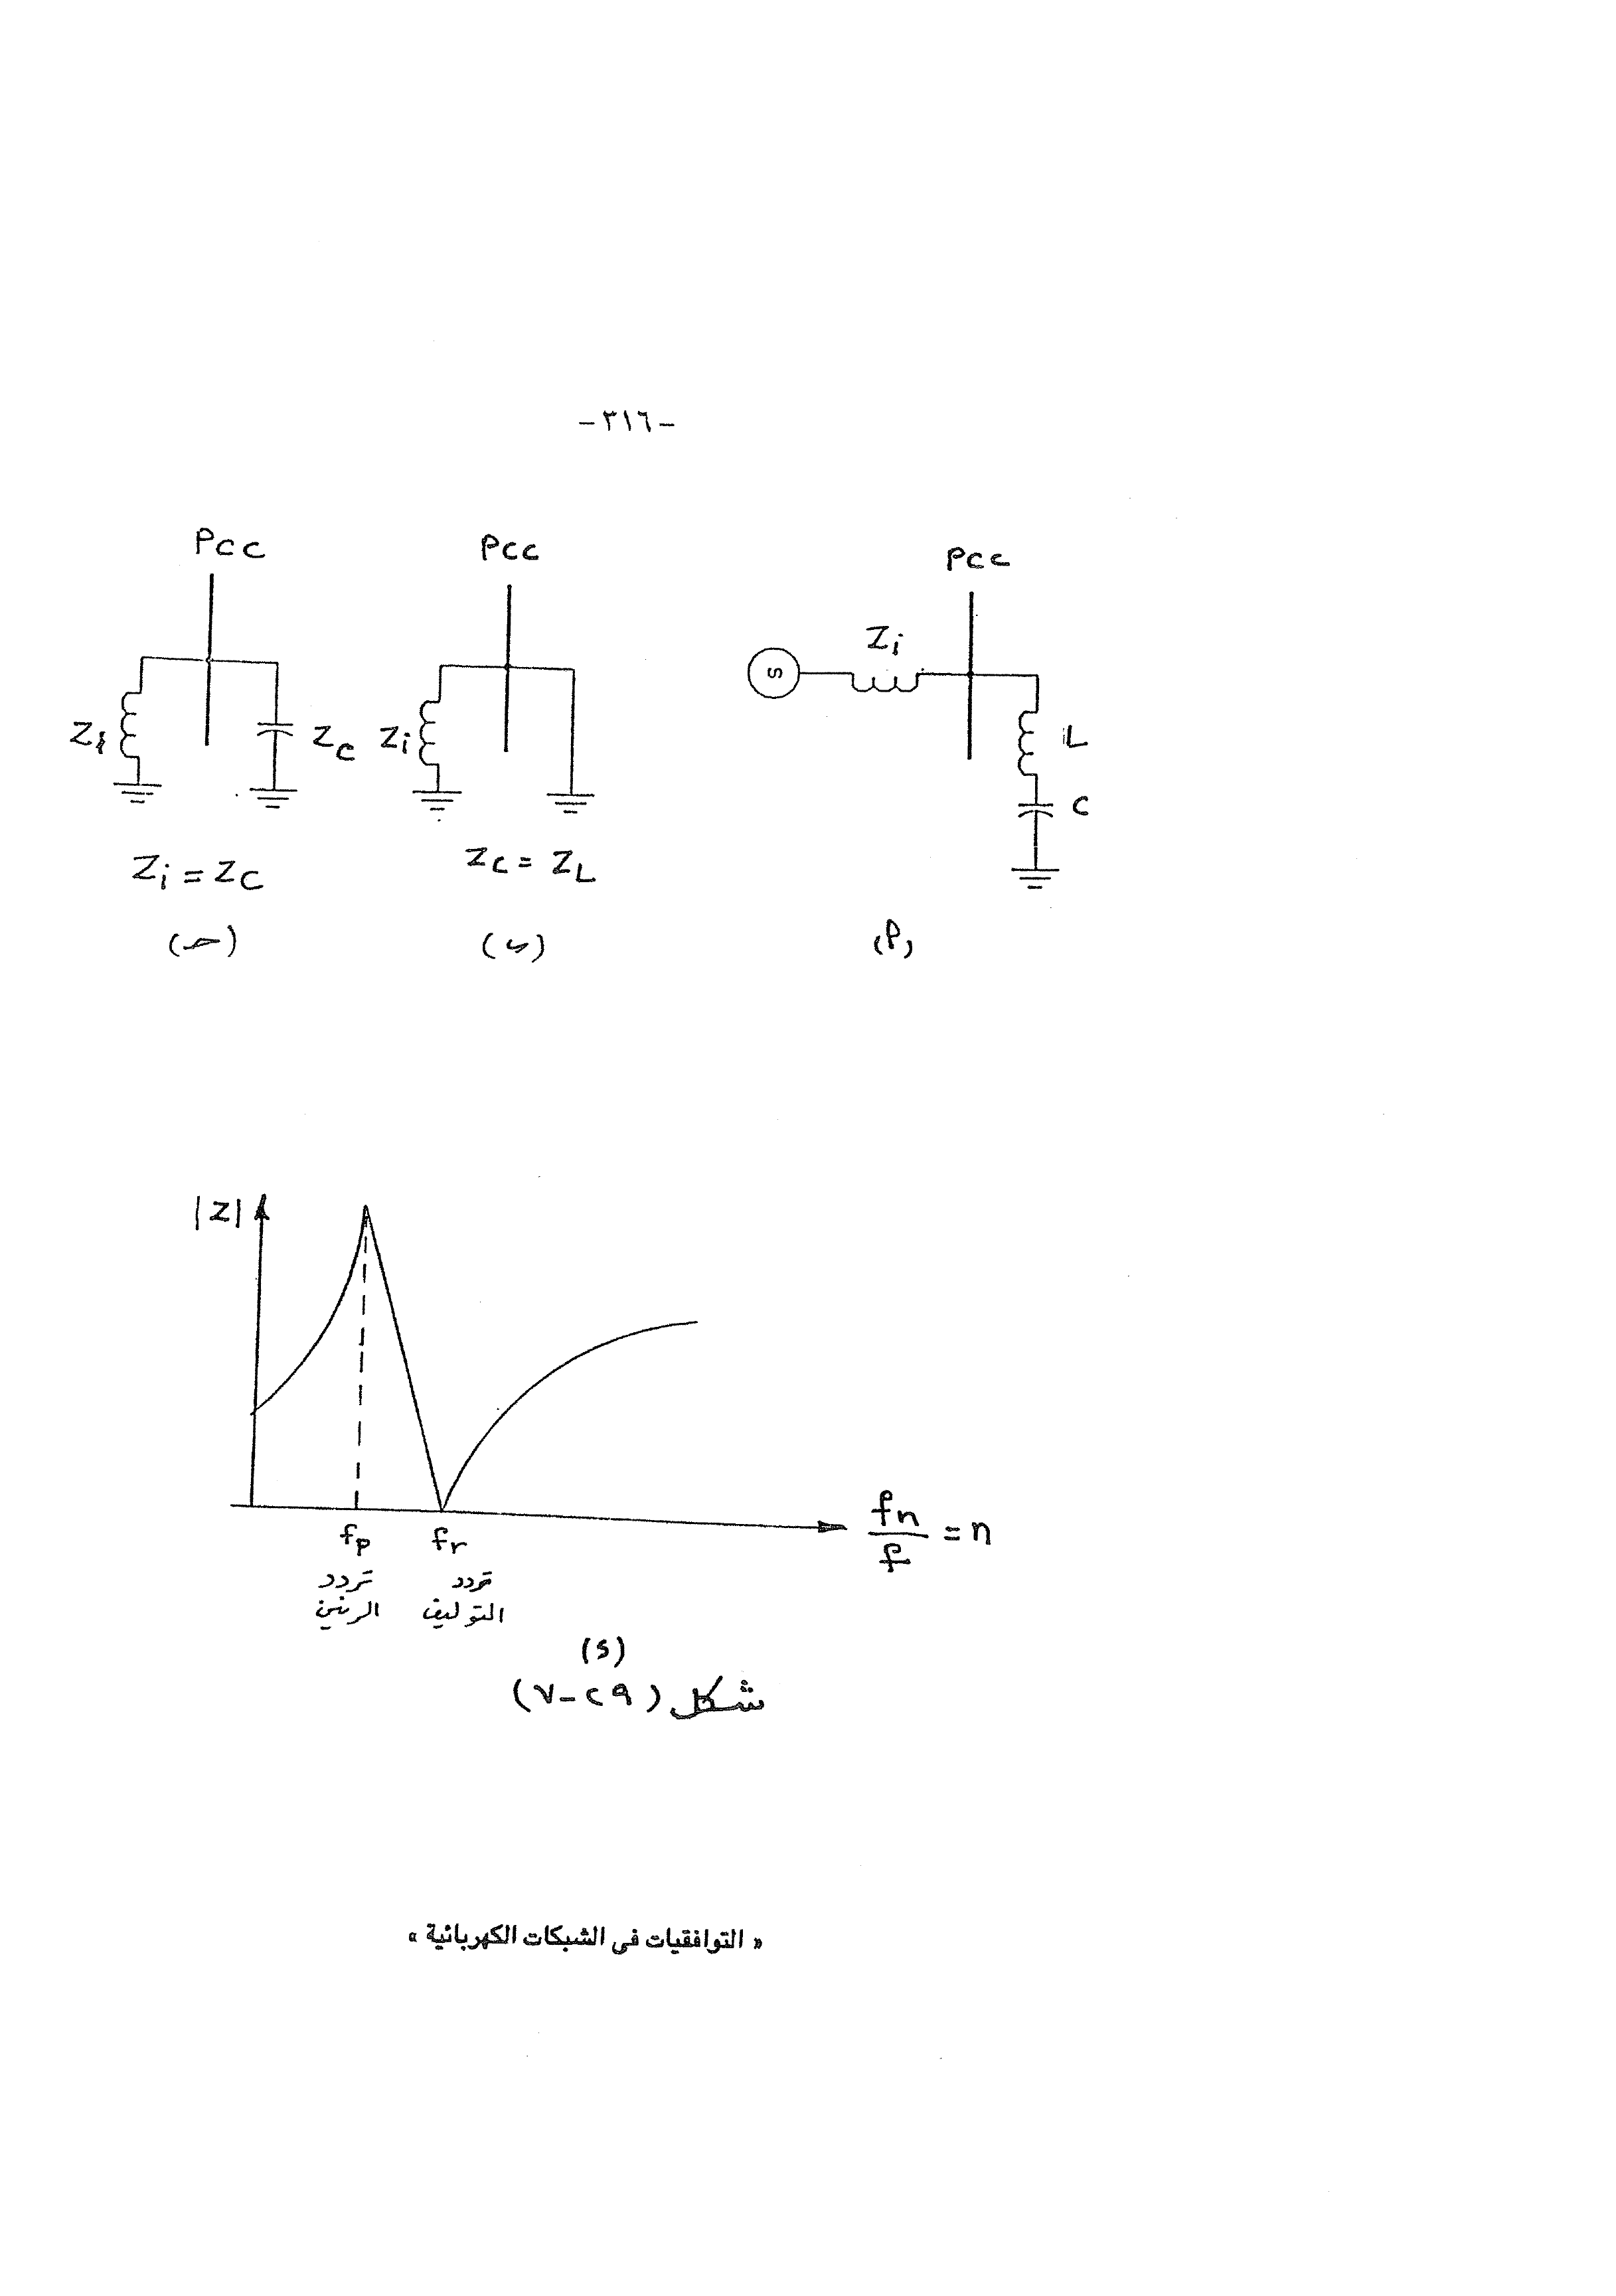 -٣١٦-
PCC PCC PCC
Zi
Zi ZC Zi L
C
Zi = ZC ZC = ZL
(حـ) (ب) (أ)
|Z|
fp fr fn/f = n
تردد الرنين تردد التوليف
(د)
شكل (٢٩-٧)
« التوافقيات فى الشبكات الكهربائية »